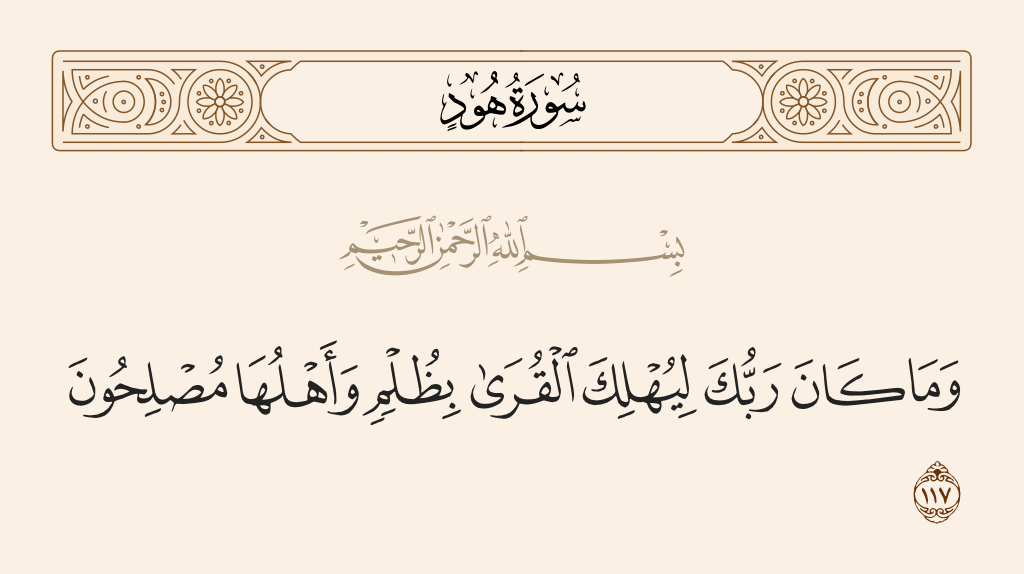 سُورَةُ هُودٍ
بِسْمِ ٱللَّهِ ٱلرَّحْمَٰنِ ٱلرَّحِيمِ
وَمَا كَانَ رَبُّكَ لِيُهْلِكَ ٱلْقُرَىٰ بِظُلْمٍ وَأَهْلُهَا مُصْلِحُونَ
١١٧